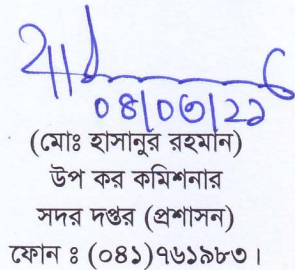 ০৪|০৩|২১
(মোঃ হাসানুর রহমান)
উপ কর কমিশনার
সদর দপ্তর (প্রশাসন)
ফোন ঃ (০৪১)৭৬১৯৮৩।